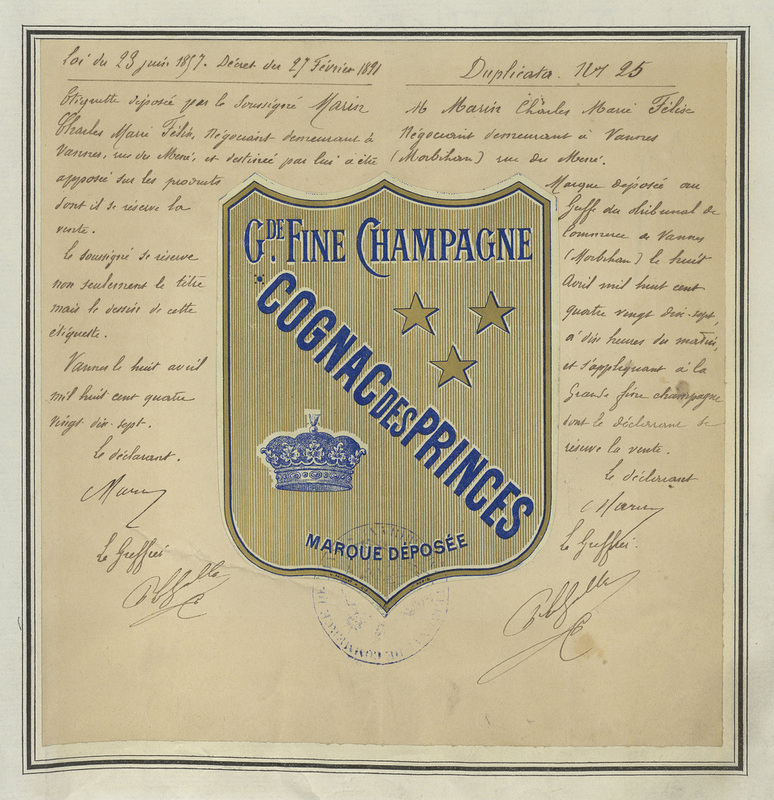 Loi du 23 juin 1857. Décret du 27 Février 1891
Etiquette déposée par le Soussigné Marin
Charles Marie Félix, Négociant demeurant à
Vannes, rue du Mené, et destinée par lui à être
apposée sur les produits
dont il se réserve la
vente.
Le soussigné se réserve
non seulement le titre
mais le dessin de cette
étiquette.
Vannes le huit avril
mil huit cent quatre
vingt dix-sept.
Le déclarant.
Marin
Le Greffier
Duplicata. No 25
M Marin Charles Marie Félix
Négociant demeurant à Vannes
(Morbihan) rue du Mené.
Marque déposée au
Greffe du tribunal de
Commerce de Vannes
(Morbihan) le huit
Avril mil huit cent
quatre vingt dix-sept,
à dix heures du matin,
et s'appliquant à la
Grande fine champagne
dont le déclarant se
réserve la vente.
Le déclarant
Marin
Le Greffier
GDE FINE CHAMPAGNE
COGNAC DES PRINCES
MARQUE DÉPOSÉE